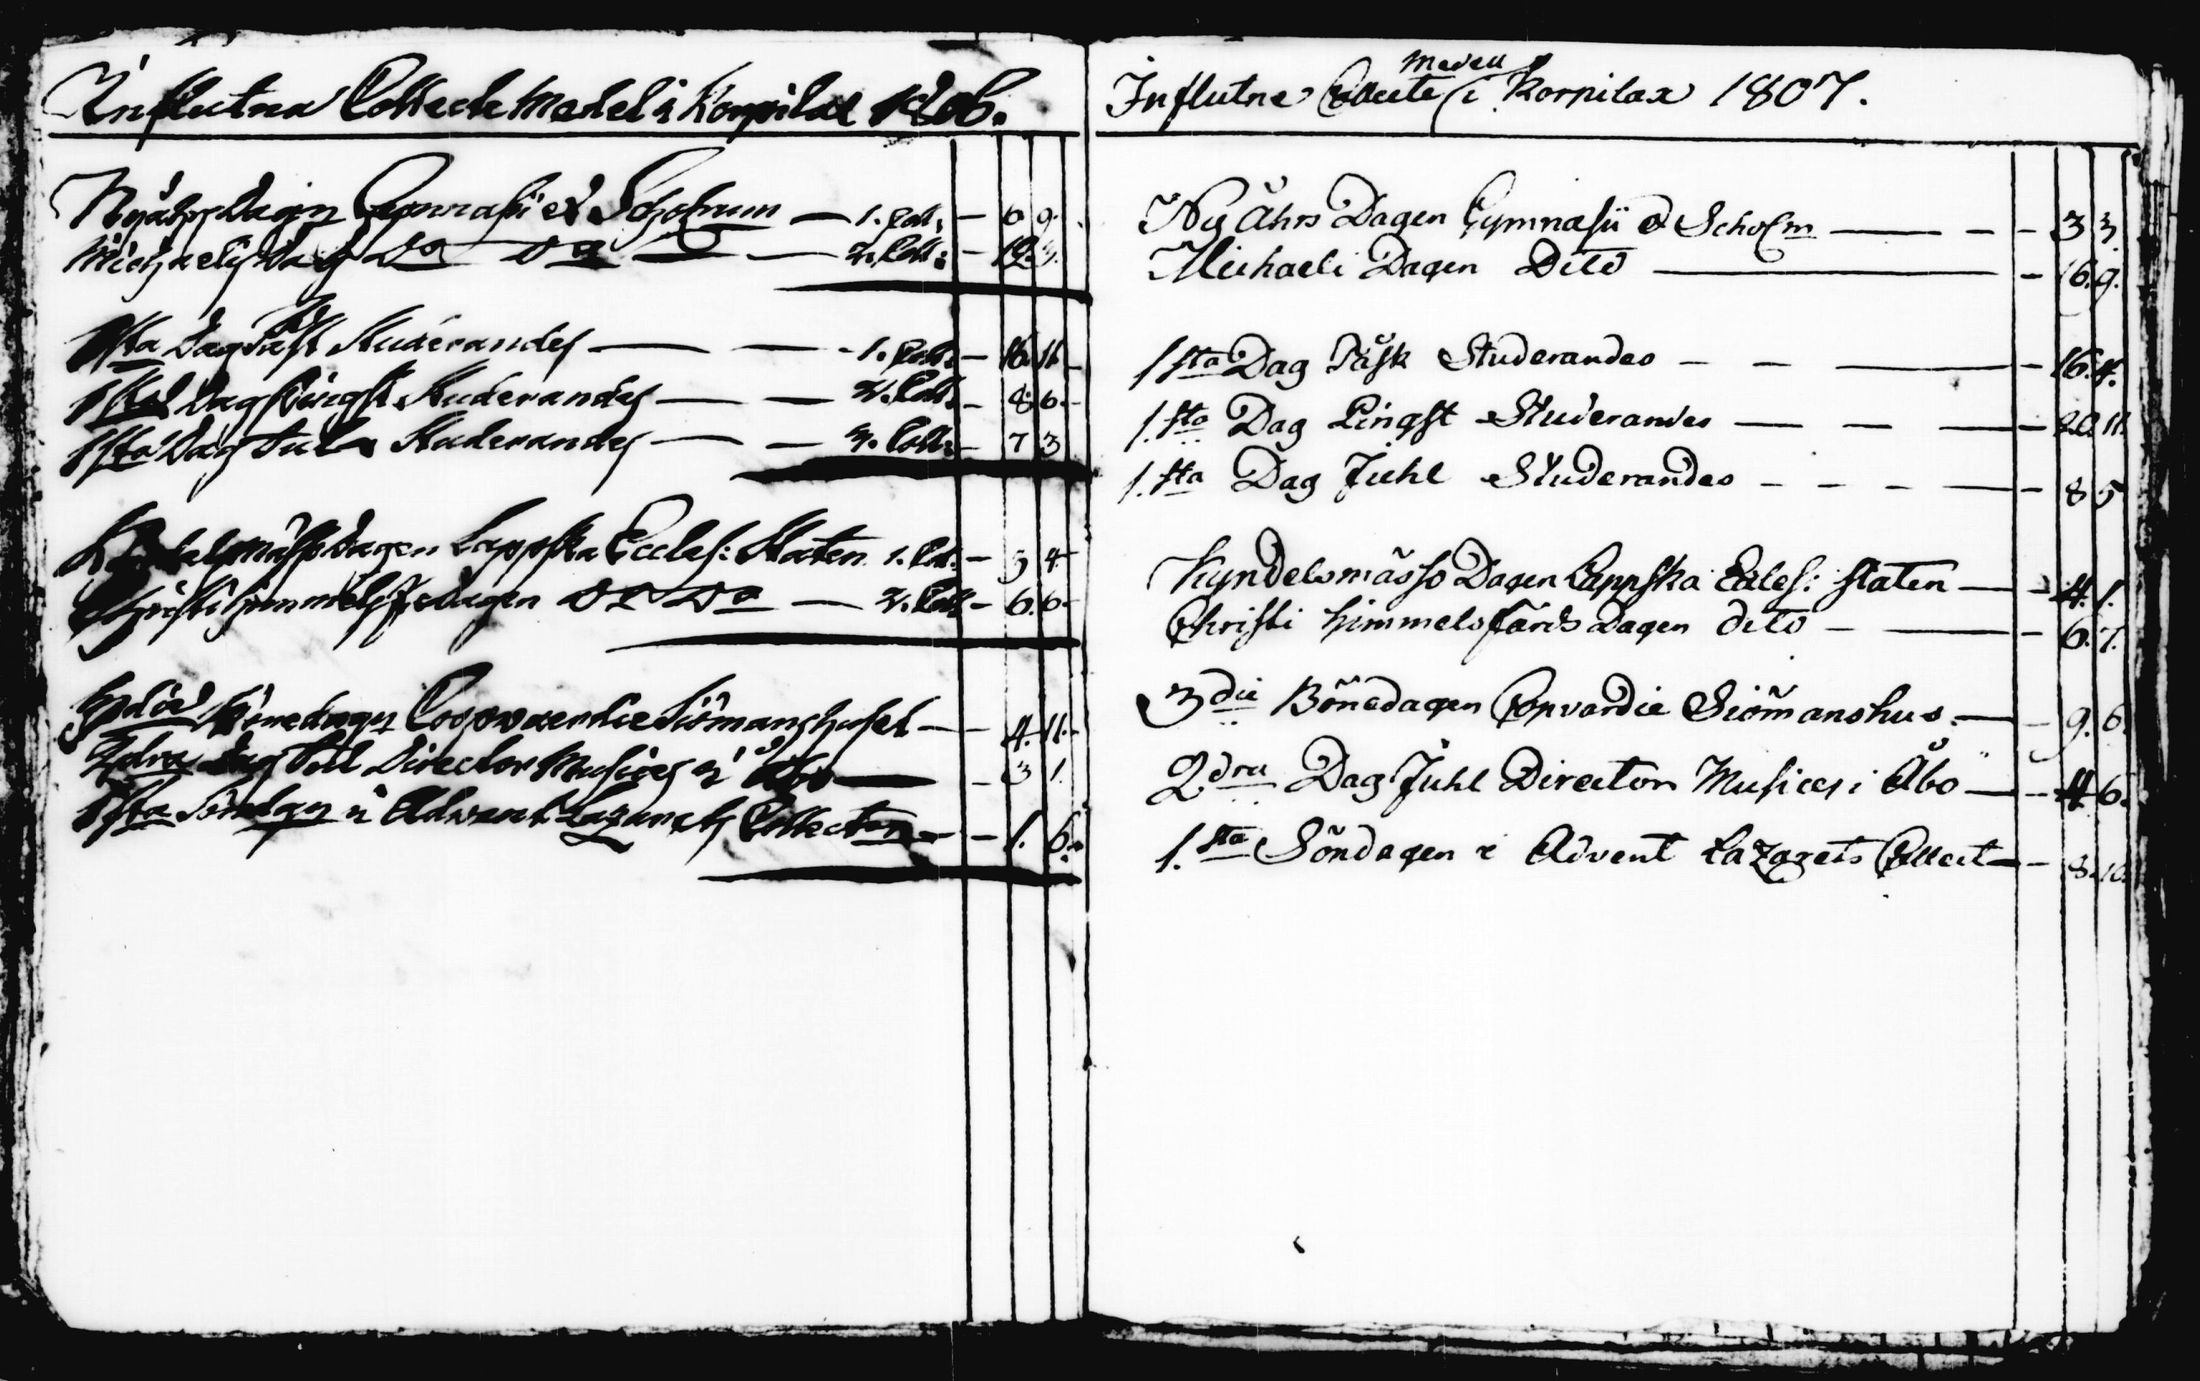 Influtna Collecte Medel i Korpilax 1806.
Nyåhrs Dagen Gymnasii et Scholarum — 1. Coll: — 6 9.
Michaelis Dag Do Do — 2. Coll: — 12. 3.
1sta Dag Påsk Studerandes — — 1. Coll. — 16. 11
1sta Dag Pingst Studerandes — — 2. Coll. — 8 6.
1sta Dag Jul Studerandes — — 3. Coll: — 7 3
Kyndelsmässo Dagen Lappska Eccles: Staten 1. Coll. — 5 4.
Christi Himmelsf: Dagen Do Do — 2. Coll — 6. 6.
3die Bönedagen Coopvaerdie Siömanshuset — — 4. 11.
2dra Dag Jul Director Musices i Åbo — — 3 1.
1sta Söndagen i Advent Lazarets Collecten — — 1. 6.
Influtne Collecte Medell i Korpilax 1807.
Ny Åhrs Dagen Gymnasii et Scholm — — — 3 3.
Michaeli Dagen Dito — — 16. 9.
1sta Dag Påsk Studerandes — — — — 16. 4.
1.sta Dag Pingst Studerandes — — — — 20. 11.
1.sta Dag Juhl Studerandes — — — — — 8 5
Kyndelsmässo Dagen Lappska Eccles: staten — — 4. 1.
Christi Himmelsfärds Dagen dito — — — 6. 7.
3die Bönedagen Copvardie Siömanshus. — — 9. 6
2dra Dag Juhl Director Musices i Åbo — — 4. 6.
1.sta Söndagen i Advent Lazarets Collect — — 8. 10.